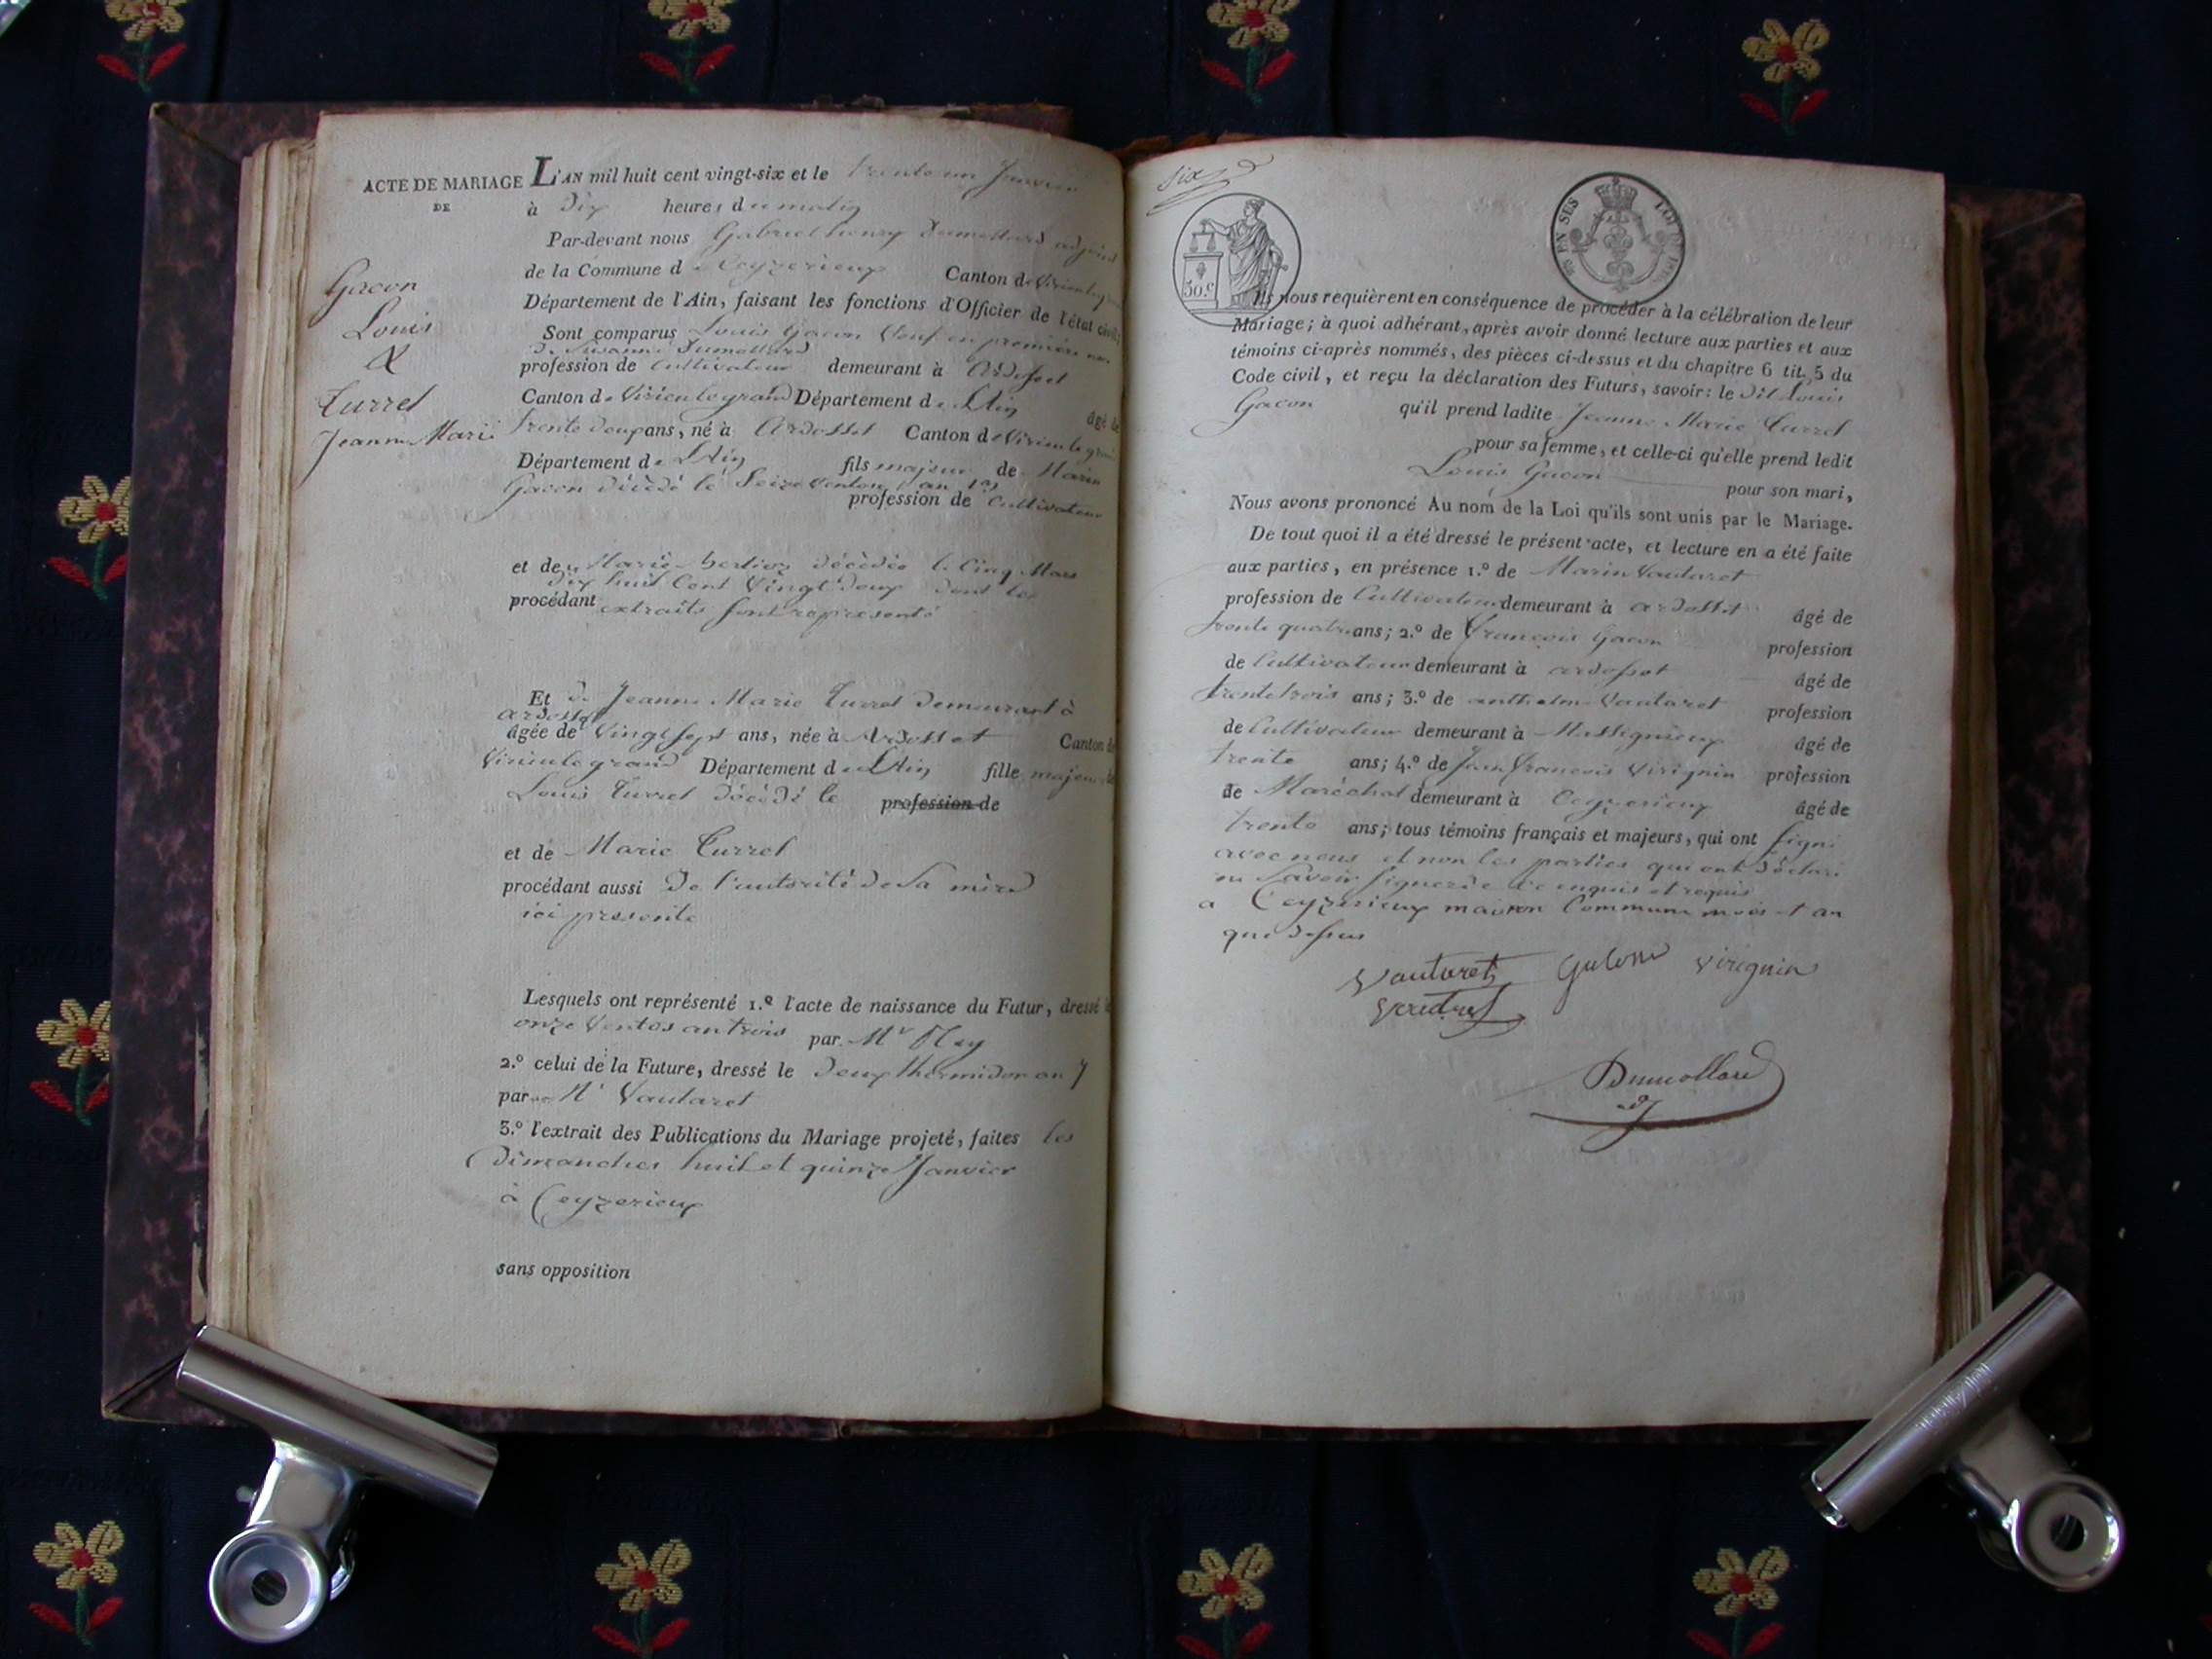 ACTE DE MARIAGE
DE
Gacon
Louis
&
Turrel
Jeanne Marie
L'AN mil huit cent vingt-six et le trente un Janvier
à Dix heures du matin
Par-devant nous Gabriel henry Dumollard adjoint
de la Commune de Ceyzerieux Canton de Virieulegrand
Département de l'Ain, faisant les fonctions d'Officier de l'état civil;
Sont comparus Louis Gacon Veuf en première
de Susanne Dumollard
profession de Cultivateur demeurant à Ardosset
Canton de Virieulegrand Département de L'Ain âgé de
trente deux ans, né à Ardosset Canton de Virieulegrand
Département de L'Ain fils majeur de Marin
Gacon Décédé le Seize Ventose an
profession de Cultivateur
et de Marie berlioz décédée le Cinq Mars
Dix huit Cent Vingt Deux dont les
procédant extraits sont representé
Et de Jeanne Marie Turrel Demeurant à
ardosset
âgée de Vingt Sept ans, née à Ardosset Canton de
Virieulegrand Département de L'Ain fille majeure de
Louis Turrel Décédé le profession de
et de Marie Turrel
procédant aussi De l'autorité de Sa mère
ici presente
Lesquels ont représenté 1.º l'acte de naissance du Futur, dressé le
onze Ventos an trois par Mr
2.º celui de la Future, dressé le Deux thermidor an 7
par Mr Vautaret
3.º l'extrait des Publications du Mariage projeté, faites les
Dimanches huit et quinze Janvier
à Ceyzerieux
sans opposition
Six
50.c
EN SES
LOI DE 1816
Ils nous requièrent en conséquence de procéder à la célébration de leur
Mariage; à quoi adhérant, après avoir donné lecture aux parties et aux
témoins ci-après nommés, des pièces ci-dessus et du chapitre 6 tit. 5 du
Code civil, et reçu la déclaration des Futurs, savoir: le Dit Louis
Gacon qu'il prend ladite Jeanne Marie Turrel
pour sa femme, et celle-ci qu'elle prend ledit
Louis Gacon pour son mari,
Nous avons prononcé Au nom de la Loi qu'ils sont unis par le Mariage.
De tout quoi il a été dressé le présent acte, et lecture en a été faite
aux parties, en présence 1.º de Marin Vautaret
profession de Cultivateur demeurant à ardosset âgé de
trente quatre ans; 2.º de françois Gacon profession
de Cultivateur demeurant à ardosset âgé de
trente trois ans; 3.º de anthelme Vautaret profession
de Cultivateur demeurant à Massignieux âgé de
trente ans; 4.º de Jean françois Virignin profession
de Maréchal demeurant à Ceyzerieux âgé de
trente ans; tous témoins français et majeurs, qui ont signé
avec nous et non les parties qui ont déclaré
ne Savoir signer de ce enquis et requis
a Ceyzerieux maison Commune mois et an
que dessus
Vautaret Virignin
Dumollard
adj